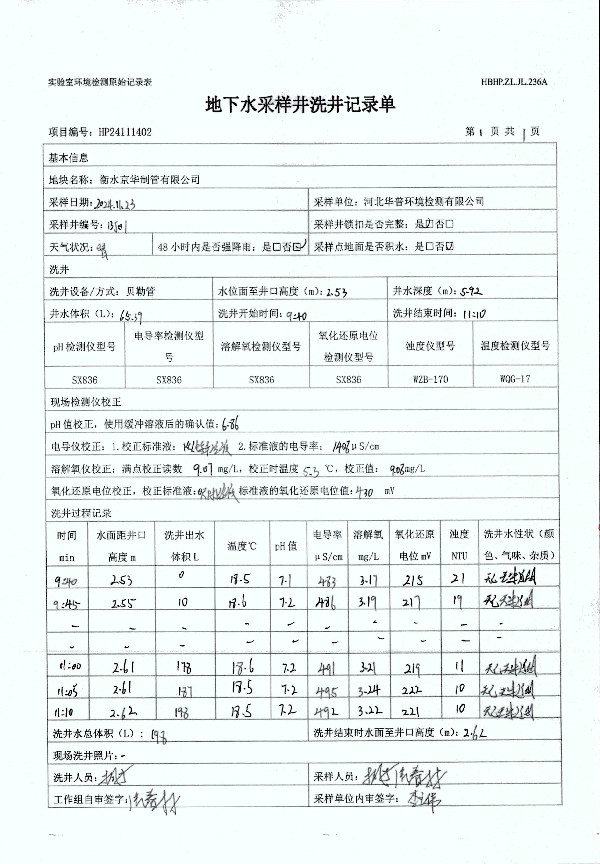 实验室环境检测原始记录表 HBHP.ZL.JL.236A
地下水采样井洗井记录单
项目编号: HP24111402 第 1 页 共 1 页
基本信息
地块名称: 衡水京华制管有限公司
采样日期: 2024.11.23 采样单位: 河北华普环境检测有限公司
采样井编号: 采样井锁扣是否完整: 是☑否□
天气状况: 48小时内是否强降雨: 是□否☑ 采样点地面是否积水: 是□否☑
洗井
洗井设备/方式: 贝勒管 水位面至井口高度 (m): 2.53 井水深度 (m): 5.92
井水体积 (L): 65.39 洗井开始时间: 9:40 洗井结束时间: 11:10
pH检测仪型号 电导率检测仪型号 溶解氧检测仪型号 氧化还原电位检测仪型号 浊度仪型号 温度检测仪型号
SX836 SX836 SX836 SX836 WZB-170 WQG-17
现场检测仪校正
pH值校正, 使用缓冲溶液后的确认值: 6.86
电导仪校正: 1.校正标准液: 2.标准液的电导率: 1408 μS/cm
溶解氧仪校正: 满点校正读数 9.07 mg/L, 校正时温度 5.3 ℃, 校正值: 9.08 mg/L
氧化还原电位校正, 校正标准液: 标准液的氧化还原电位值: 430 mV
洗井过程记录
时间 min 水面距井口高度 m 洗井出水体积 L 温度℃ pH值 电导率 μS/cm 溶解氧 mg/L 氧化还原电位 mV 浊度 NTU 洗井水性状 (颜色、气味、杂质)
9:40 2.53 0 18.5 7.1 483 3.17 215 21
9:45 2.55 10 18.6 7.2 486 3.19 217 19
- - - - - - - - - -
- - - - - - - - - -
11:00 2.61 178 18.6 7.2 491 3.21 219 11
11:05 2.61 187 18.5 7.2 495 3.24 222 10
11:10 2.62 198 18.5 7.2 492 3.22 221 10
洗井水总体积 (L): 198 洗井结束时水面至井口高度 (m): 2.62
现场洗井照片: -
洗井人员: 采样人员:
工作组自审签字: 采样单位内审签字: